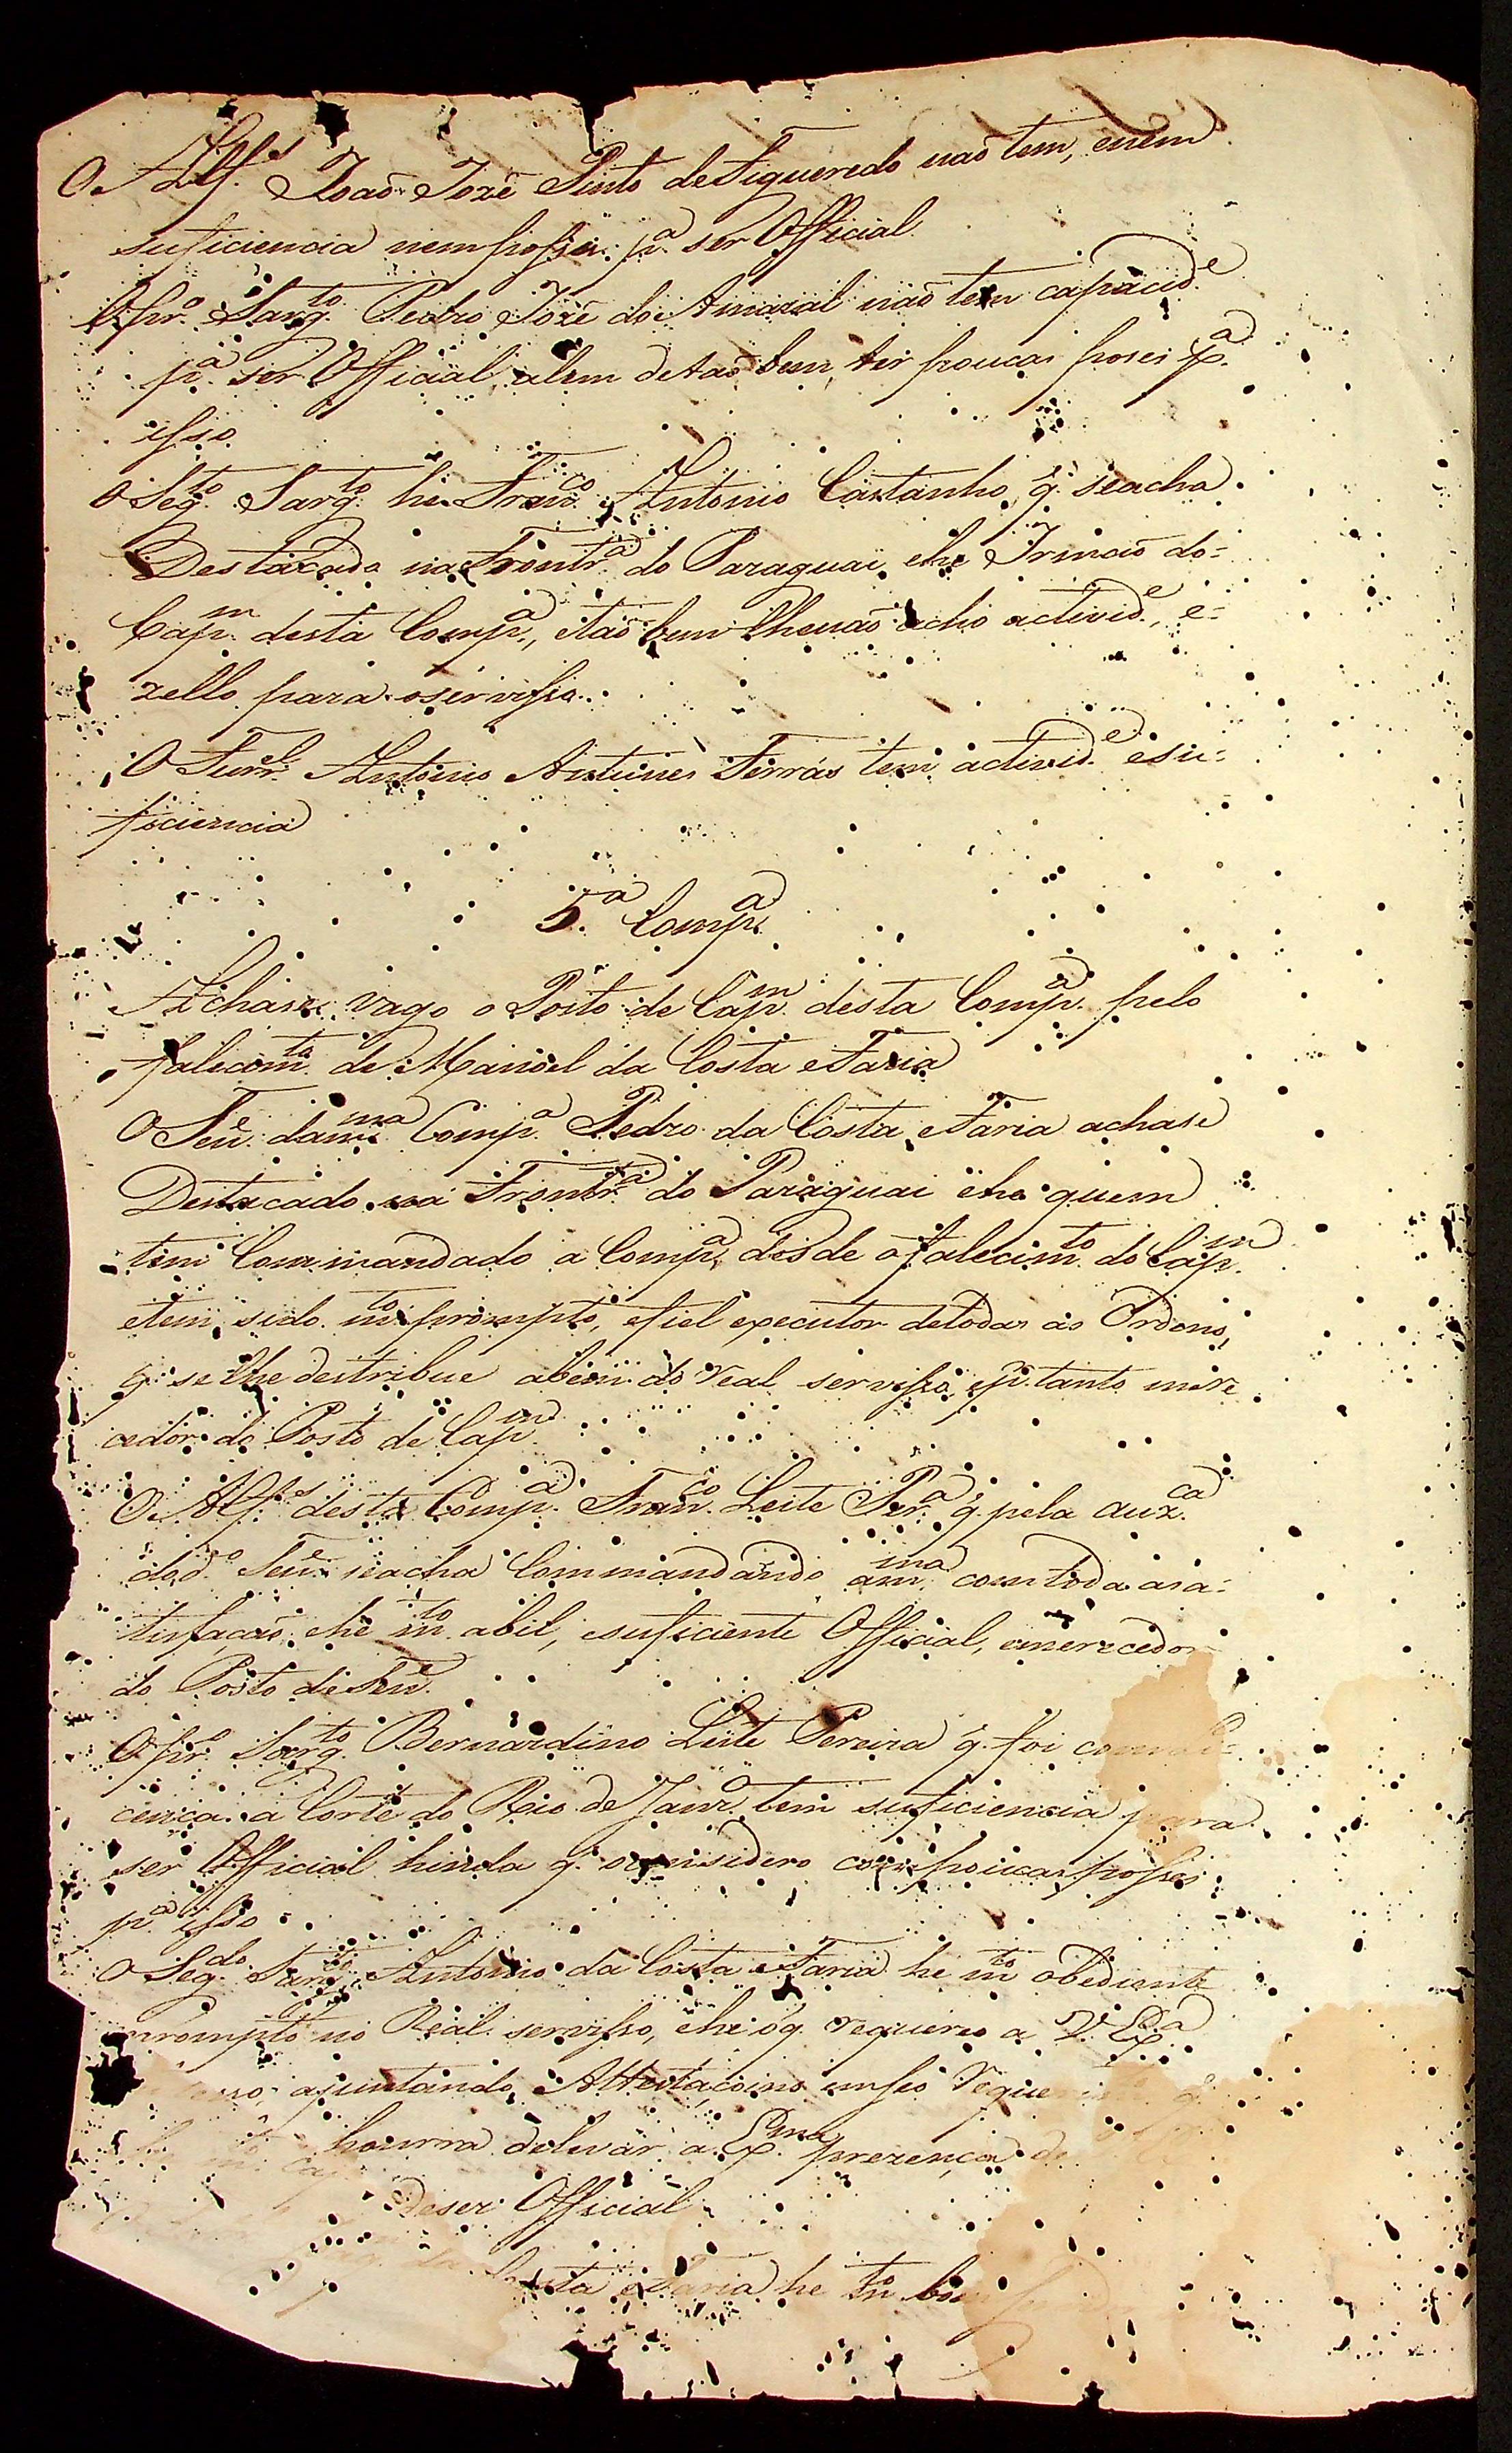 O Alf.s João Jozé Pinto de Figueredo não tem, enem
suficiencia nem posses p.a ser Official.
O pr.o Sarg.to Pedro Jozé do Amaral não tem capacid.e
p.a ser Official, alem detaõ bem, ter poucas poses p.a
isso.
O Seg.to Sarg.to he Fran.co Antonio Castanho q. seacha
Destacado na Frontr.a do Paraguai ehe Irmaõ do=
Cap.m desta Comp.a, etaõ bem lhenaõ acho activid.e, e=
zello para oservisso.
O Furr.el Antonio Antunes Ferrás tem activid.e esu=
ficiencia
5.a Comp.a
Achase vago o Posto de Cap.m desta Comp.a pelo
falecim.to de Manoel da Costa eFaria
O Ten.e dam.ma Comp.a Pedro da Costa eFaria achase
Destacado na Frontr.a do Paraguai ehe quem
tem Commandado a Comp.a desde ofalecim.to do Cap.m
etem sido m.to prompto, efiel executor detodas as Ordens,
q. se lhe destribue abem do real servisso, ep.r tanto mere
cedor do Posto de Cap.m
O Alf.s desta Comp.a Fran.co Leite Per.a q. pela auz.ca
dod.o Ten.e seacha Commandando am.ma comtoda asa=
tisfaçaõ, ehe m.to abil, esuficiente Official, emerecedor
do Posto deTen.e
O pr.o Sarg.to Bernardino Leite Pereira q. foi com li=
cença a Corte do Rio de Janr.o tem suficiencia para
ser Official hinda q. oconsidero com poucas posses
p.a isso
O Seg.do Sarg.to Antonio da Costa eFaria he m.to obediente
prompto no Real servisso, ehe oq. requereo a V. Ex.a
ajuntando Attestaçoins emseo
honrra delevar a Ex.ma prezença de
deser Official
Costa eFaria he m.to bom